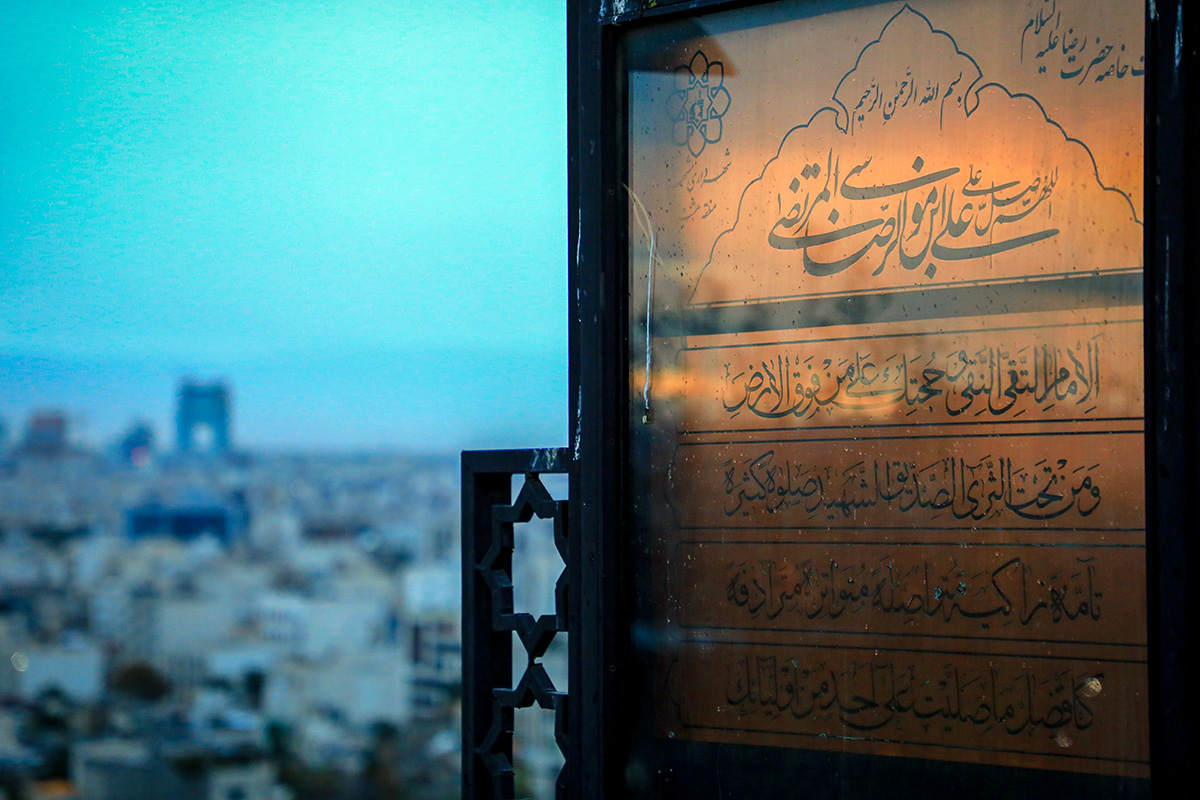 ت خاصه حضرت رضا علیه السلام
بسم الله الرَّحمٰنِ الرَّحیم
اللهم صلِّ علی علی ابن موسی الرضا المرتضی
اَلاِمامِ التَّقیِّ النَّقیِّ و حُجَّتِكَ عَلی مَن فَوقَ الاَرضِ
وَمَن تَحتَ الثَّریٰ الصِّدّیقِ الشَّهیدِ صَلوةً کَثیرَةً
تآمَّةً زاکیَةً مُتَواصِلَةً مُتَواتِرَةً مُتَرادِفَةً
کَاَفضَلِ ما صَلَّیتَ عَلیٰ اَحَدٍ مِن اَولیائِكَ